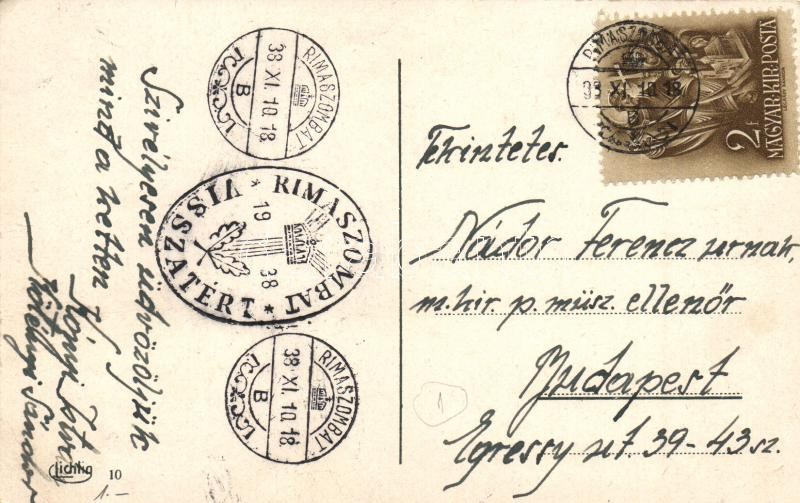 Szivélyesen üdvözöljük
mind a ketten
Kótenyi Sándor
RIMASZOMBAT
38 XI. 10. 18
B
VISSZATÉRT * RIMASZOMBAT *
19 38
RIMASZOMBAT
38 XI. 10. 18
B
Lichtig
10
1.-
RIMASZOMBAT
38 XI. 10. 18
2f
MAGYAR·KIR·POSTA
Tekintetes.
Nádor Ferencz urnak,
m. kir. p. müsz. ellenőr
Budapest
Egressy ut. 39-43 sz.
1